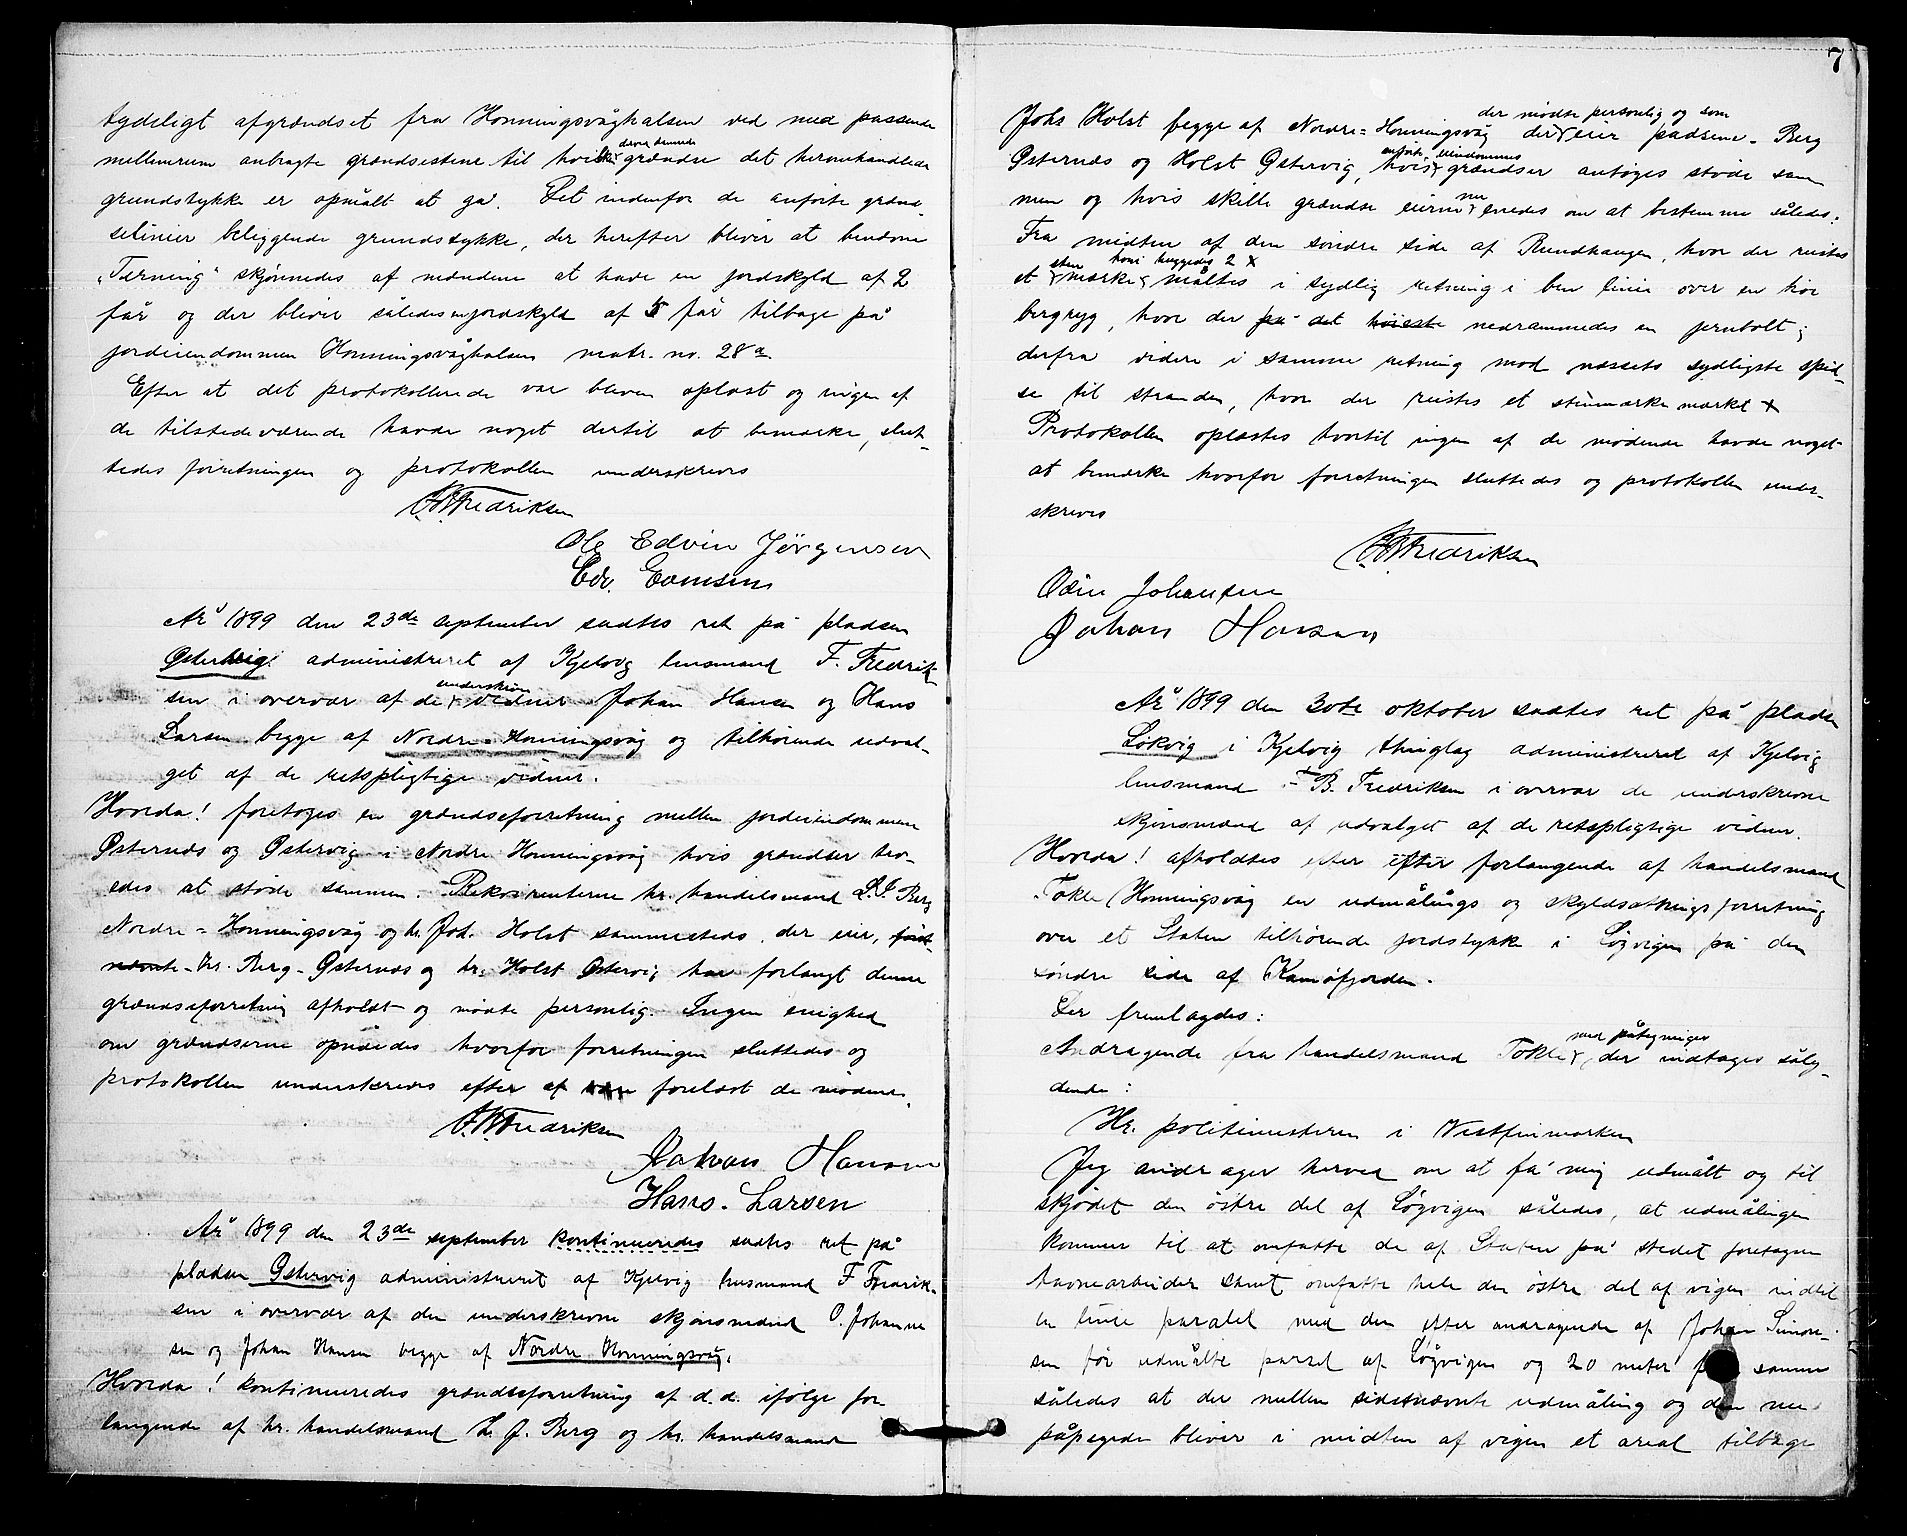 tydeligt afgrændset fra Honningsvåghalsen ved med passende
mellemrum anbragte grændsestene til hvilke grændse det heromhandlede
grundstykke er opmålt at gå. Det indenfor de anførte grænd-
selinier beliggende grundstykke, der herefter bliver at benævne
"Tærning" skjønnedes af mændene at have en jordskyld af 2
før og der bliver således en jordskyld af 5 før tilbage på
jordeiendommen Honningsvåghalsen matr. no. 28a
Efter at det protokollerede var bleven oplæst og ingen af
de tilstedeværende havde noget dertil at bemærke, slut-
tedes forretningen og protokollen underskreves
F.B. Fredriksen
Ole Edvin Jørgensen
Edv. Evensen
År 1899 den 23de september sættes ret på pladsen
Østervig administreret af Kjelvig lensmand F. Fredrik-
sen i overvær af de underskrevne vidner Johan Hansen og Hans
Larsen begge af Nordre-Honningsvåg og tilhørende udval-
get af de retspligtige vidner.
Hvorda! foretoges en grændseforretning mellem jordeiendommene
Østernæs og Østervig i Nordre Honningsvåg hvis grændser tro-
edes at støde sammen. Rekvirenterne hr. handelsmand L.J. Berg
Nordre-Honningsvåg og hr. Joh. Holst sammesteds, der eier, først-
nævnte-hr. Berg-Østernæs og hr. Holst Østervig har forlangt denne
grændseforretning afholdt og mødte personlig. Ingen enighed
om grændserne opnåedes hvorfor forretningen sluttedes og
protokollen underskreves efter at være forelæst de mødende.
F.B. Fredriksen
Johan Hansen
Hans. Larsen
År 1899 den 23de september kontinueredes sættes ret på
pladsen Østervig administreret af Kjelvig lensmand F Fredrik-
sen i overvær af de underskrevne skjønsmænd O. Johanne
sen og Johan Hansen begge af Nordre Honningsvåg.
Hvorda! kontinueredes grændseforretning af d.d. ifølge for
langende af hr. handelsmand L. J. Berg og hr. handelsmand
7
der mødte personlig og som
Johs Holst begge af Nordre-Honningsvåg der eier pladsene - Berg
Østernæs og Holst Østervig, hvis anførte eiendommes grændser antoges støde sam
men og hvis skille grændse eierne nu enedes om at bestemme således:
Fra midten af den søndre side af Rundhaugen, hvor der reistes
et sten mærke hvori huggedes 2 x måltes i sydlig retning i ben linie over en høi
bergryg, hvor der på det høieste nedrammedes en jernbolt;
derfra videre i samme retning mod næssets sydligste spid-
se til stranden, hvor der reistes et stenmærke mærket x
Protokollen oplæstes hvortil ingen af de mødende havde noget
at bemærke hvorfor forretningen sluttedes og protokollen under-
skreves
F.B. Fredriksen
Odin Johansen
Johan Hansen
År 1899 den 30te oktober sættes ret på pladsen
Løkvig i Kjelvig thinglag administreret af Kjelvig
lensmand F. B. Fredriksen i overvær de underskrevne
skjønsmænd af udvalget af de retspligtige vidner.
Hvorda! afholdtes efter efter forlangende af handelsmand
Tokle Honningsvåg en udmålings og skyldsætningsforretning
over et Staten tilhørende jordstykke i Løgvigen på den
søndre side af Kamøfjorden.
Der fremlagdes:
Andragende fra handelsmand Tokle med påtegninger der indtages såly-
dende:
Hr. politimesteren i Vestfinmarken
Jeg andrager herved om at få mig udmålt og til
skjødet den østre del af Løgvigen således, at udmålingen
kommer til at omfatte de af Staten på stedet foretagne
havnearbeider samt omfatte hele den østre del af vigen indtil
en linie paralel med den efter andragende af Johan Simon-
sen før udmålte parsel af Løgvigen og 20 meter fra samme
således at der mellem sidstnævnte udmåling og den nu
påpegede bliver i midten af vigen et areal tilbage